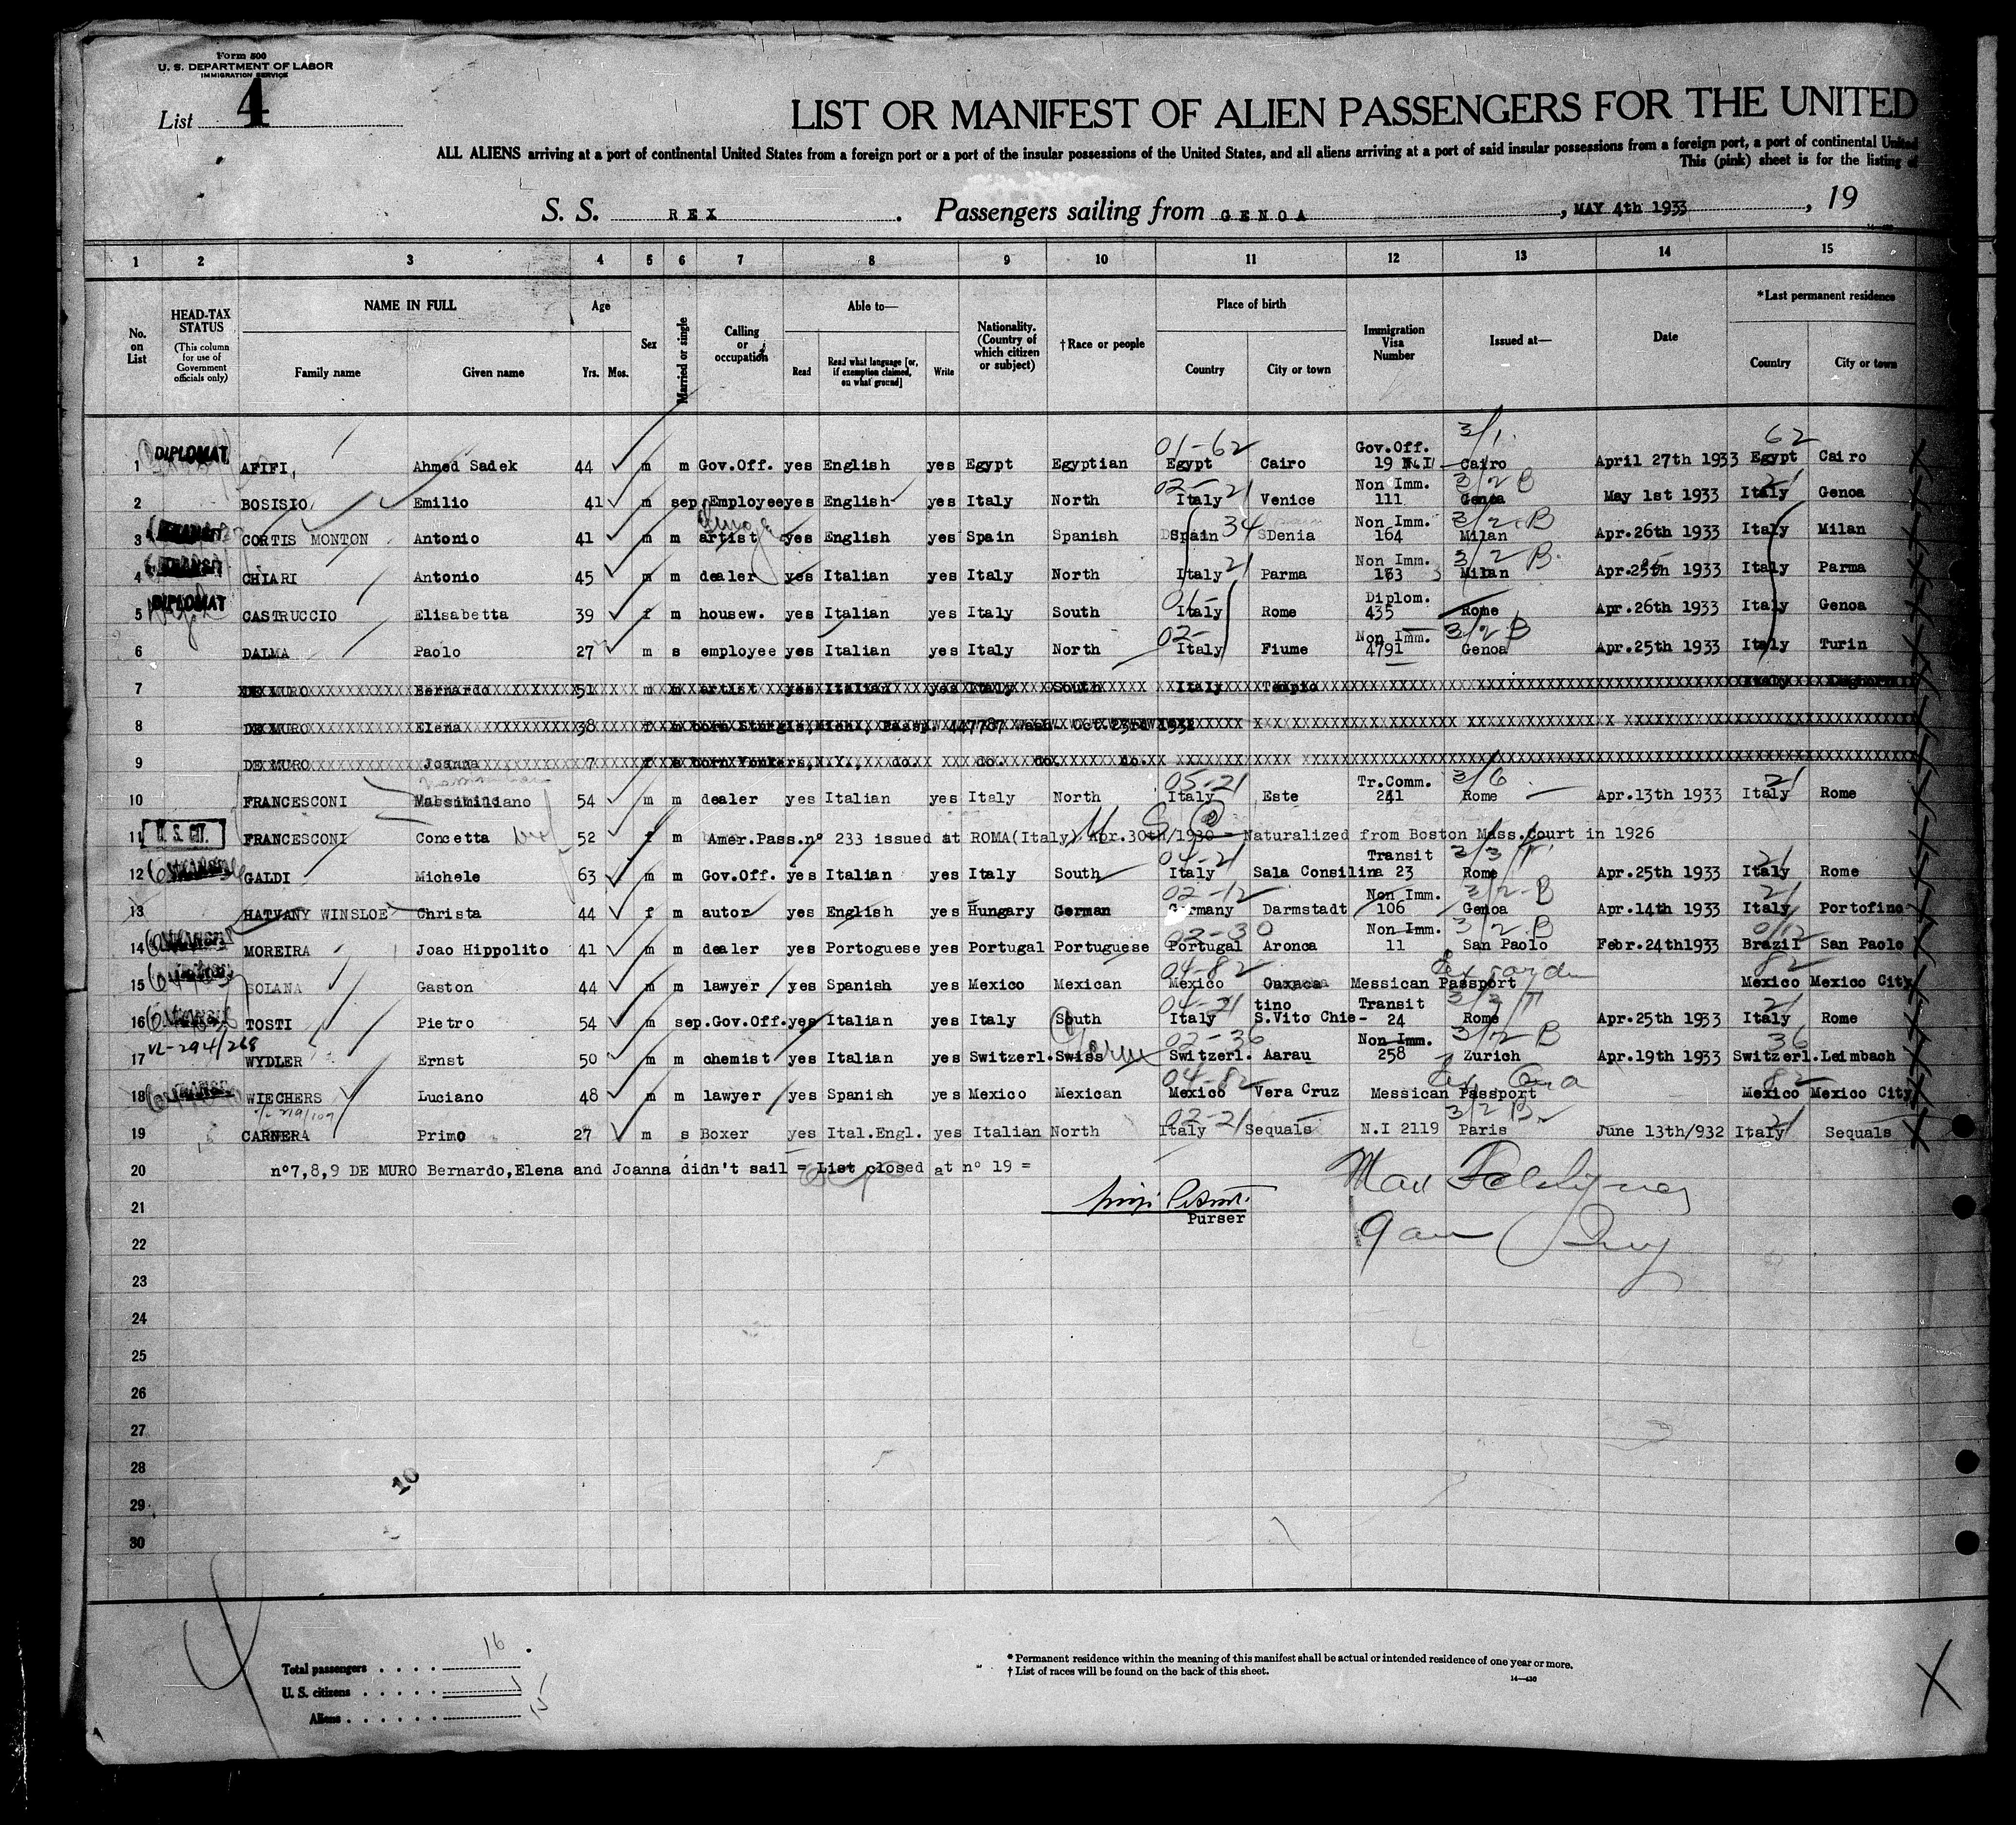 Form 500
U. S. DEPARTMENT OF LABOR
IMMIGRATION SERVICE
List 4
LIST OR MANIFEST OF ALIEN PASSENGERS FOR THE UNITED
ALL ALIENS arriving at a port of continental United States from a foreign port or a port of the insular possessions of the United States, and all aliens arriving at a port of said insular possessions from a foreign port, a port of continental United
This (pink) sheet is for the listing of
S. S. REX. Passengers sailing from GENOA, MAY 4th 1933, 19
1 2 3 4 5 6 7 8 9 10 11 12 13 14 15
No. on List
HEAD-TAX STATUS (This column for use of Government officials only)
NAME IN FULL Family name Given name
Age Yrs. Mos.
Sex
Married or single
Calling or occupation
Able to— Read Read what language [or, if exemption claimed, on what ground] Write
Nationality. (Country of which citizen or subject)
†Race or people
Place of birth Country City or town
Immigration Visa Number
Issued at—
Date
*Last permanent residence Country City or town
01-62 Gov.Off. 3/1. 62
1 DIPLOMAT AFIFI, Ahmed Sadek 44 m m Gov.Off. yes English yes Egypt Egyptian Egypt Cairo 19 N.I Cairo April 27th 1933 Egypt Cairo
02-21 Non Imm. 3/2 B 21
2 BOSISIO Emilio 41 m sep. Employee yes English yes Italy North Italy Venice 111 Genoa May 1st 1933 Italy Genoa
34 Non Imm. 3/2 B
3 CORTIS MONTON Antonio 41 m m artist yes English yes Spain Spanish Spain Denia 164 Milan Apr.26th 1933 Italy Milan
TRANSIT 21 Non Imm. 3/2 B.
4 CHIARI Antonio 45 m m dealer yes Italian yes Italy North Italy Parma 163 Milan Apr.25th 1933 Italy Parma
DIPLOMAT 01- Diplom.
5 CASTRUCCIO Elisabetta 39 f m housew. yes Italian yes Italy South Italy Rome 435 Rome Apr.26th 1933 Italy Genoa
02- Non Imm. 3/2 B
6 DALMA Paolo 27 m s employee yes Italian yes Italy North Italy Fiume 4791 Genoa Apr.25th 1933 Italy Turin
7 DE MURO Bernardo 51 m m artist yes Italian yes Italy South Italy Tempio Italy
8 DE MURO Elena 38 f m born Sturgis, Mich., Passp. 447787 Wash. Oct. 23rd 1931
9 DE MURO Joanna 7 f s born Yonkers, N.Y., do. do. do. do.
05-21 Tr.Comm. 3/6 21
10 FRANCESCONI Massimiliano 54 m m dealer yes Italian yes Italy North Italy Este 241 Rome Apr.13th 1933 Italy Rome
11 U. S. CIT. FRANCESCONI Concetta 52 f m Amer.Pass.n° 233 issued at ROMA(Italy) Apr.30th/1930 - Naturalized from Boston Mass.Court in 1926
04-21 Transit 3/3 T. 21
12 GALDI Michele 63 m m Gov.Off. yes Italian yes Italy South Italy Sala Consilina 23 Rome Apr.25th 1933 Italy Rome
02-12 Non Imm. 3/2-B 21
13 HATVANY WINSLOE Christa 44 f m autor yes English yes Hungary German Germany Darmstadt 106 Genoa Apr.14th 1933 Italy Portofino
02-30 Non Imm. 3/2 B
14 MOREIRA Joao Hippolito 41 m m dealer yes Portoguese yes Portugal Portuguese Portugal Aronca 11 San Paolo Febr.24th1933 Brazil San Paolo
04-82 82
15 SOLANA Gaston 44 m m lawyer yes Spanish yes Mexico Mexican Mexico Oaxaca Messican Passport Mexico Mexico City
04-21 tino Transit 3/3 T 21
16 TOSTI Pietro 54 m sep. Gov.Off. yes Italian yes Italy South Italy S.Vito Chie- 24 Rome Apr.25th 1933 Italy Rome
VL-294/268 02-36 Non Imm. 3/2 B 36
17 WYDLER Ernst 50 m m chemist yes Italian yes Switzerl. Swiss Germ Switzerl. Aarau 258 Zurich Apr.19th 1933 Switzerl. Leimbach
04-82 82
18 WIECHERS Luciano 48 m m lawyer yes Spanish yes Mexico Mexican Mexico Vera Cruz Messican Passport Mexico Mexico City
02-21 3/2 B 21
19 CARNERA Primo 27 m s Boxer yes Ital.Engl. yes Italian North Italy Sequals N.I 2119 Paris June 13th/932 Italy Sequals
20 n°7,8,9 DE MURO Bernardo,Elena and Joanna didn't sail = List closed at n° 19 =
21
Purser
22
23
24
25
26
27
28
29
30
10
Total passengers 16
U. S. citizens 1
Aliens 15
* Permanent residence within the meaning of this manifest shall be actual or intended residence of one year or more.
† List of races will be found on the back of this sheet.
14—430